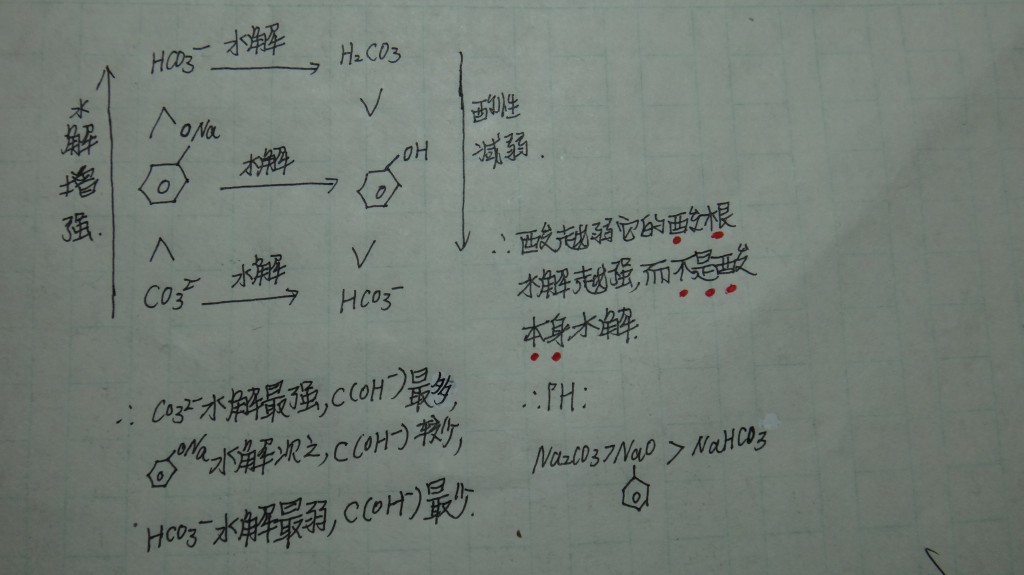 HCO₃⁻ 水解 H₂CO₃
∧ ∨
ONa 水解 OH
∧ ∨
CO₃²⁻ 水解 HCO₃⁻
水解增强.
酸性
减弱.
∴酸越弱它的酸根
水解越强,而不是酸
本身水解.
∴CO₃²⁻水解最强,C(OH⁻)最多,
ONa水解次之,C(OH⁻)较少,
HCO₃⁻水解最弱,C(OH⁻)最少.
∴PH:
Na₂CO₃>NaO>NaHCO₃